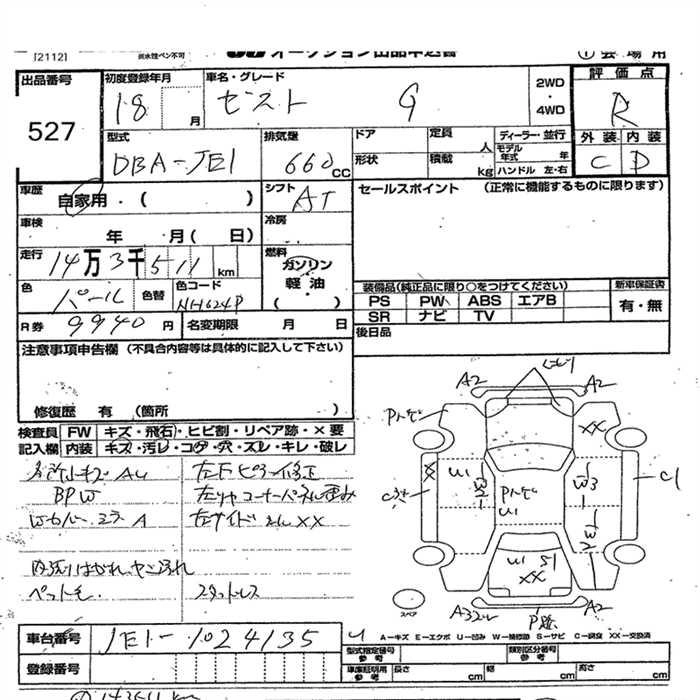 [2112]
オークション出品申込書
① 会場用
出品番号
527
初度登録年月
18 月
車名・グレード
ゼスト G
2WD
・
4WD
評価点
R
外装 内装
C D
型式
DBA-JE1
排気量
660 CC
ドア
形状
定員 人
積載 kg
ディーラー・並行
モデル年式 年
ハンドル 左・右
車歴
自家用・( )
シフト
AT
セールスポイント (正常に機能するものに限ります)
車検
年 月( 日)
冷房
走行
14万3千511 km
燃料
ガソリン
軽油
( )
色
パール
色替
色コード
NH624P
装備品(純正品に限り○をつけてください)
新車保証書
PS PW ABS エアB
有・無
SR ナビ TV
R券 9940 円
名変期限 月 日
後日品
注意事項申告欄 (不具合内容等は具体的に記入して下さい)
修復歴 有 (箇所 )
検査員 FW キズ・飛石・ヒビ割・リペア跡・×要
記入欄 内装 キズ・汚レ・コゲ・穴・スレ・キレ・破レ
左F ピラー修正
BPW
左リヤコーナーパネル歪み
Wカバー ミラーA
左サイドシルXX
内張りはがれ、ヤニ汚れ
ペット毛
スタッドレス
A2
A2
XX
W3
W2
C1
U1
U1
S1
XX
A2
スペア
車台番号 JE1-1024135
A-キズ E-エクボ U-凹み W-補修跡 S-サビ C-腐食 XX-交換済
型式指定番号
参考
類別区分番号
参考
登録番号
車庫証明用
参考
長さ cm 幅 cm 高さ cm